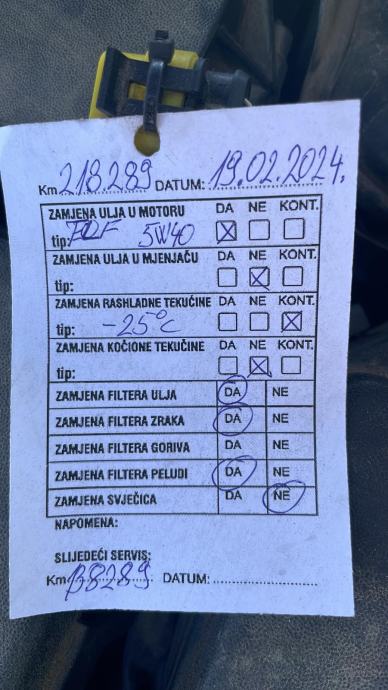 Km 218.289 DATUM: 19.02.2024.
ZAMJENA ULJA U MOTORU DA NE KONT.
tip: 5W40
ZAMJENA ULJA U MJENJAČU DA NE KONT.
tip:
ZAMJENA RASHLADNE TEKUĆINE DA NE KONT.
tip: -25°C
ZAMJENA KOČIONE TEKUČINE DA NE KONT.
tip:
ZAMJENA FILTERA ULJA DA NE
ZAMJENA FILTERA ZRAKA DA NE
ZAMJENA FILTERA GORIVA DA NE
ZAMJENA FILTERA PELUDI DA NE
ZAMJENA SVJEČICA DA NE
NAPOMENA:
SLIJEDEĆI SERVIS:
Km DATUM: